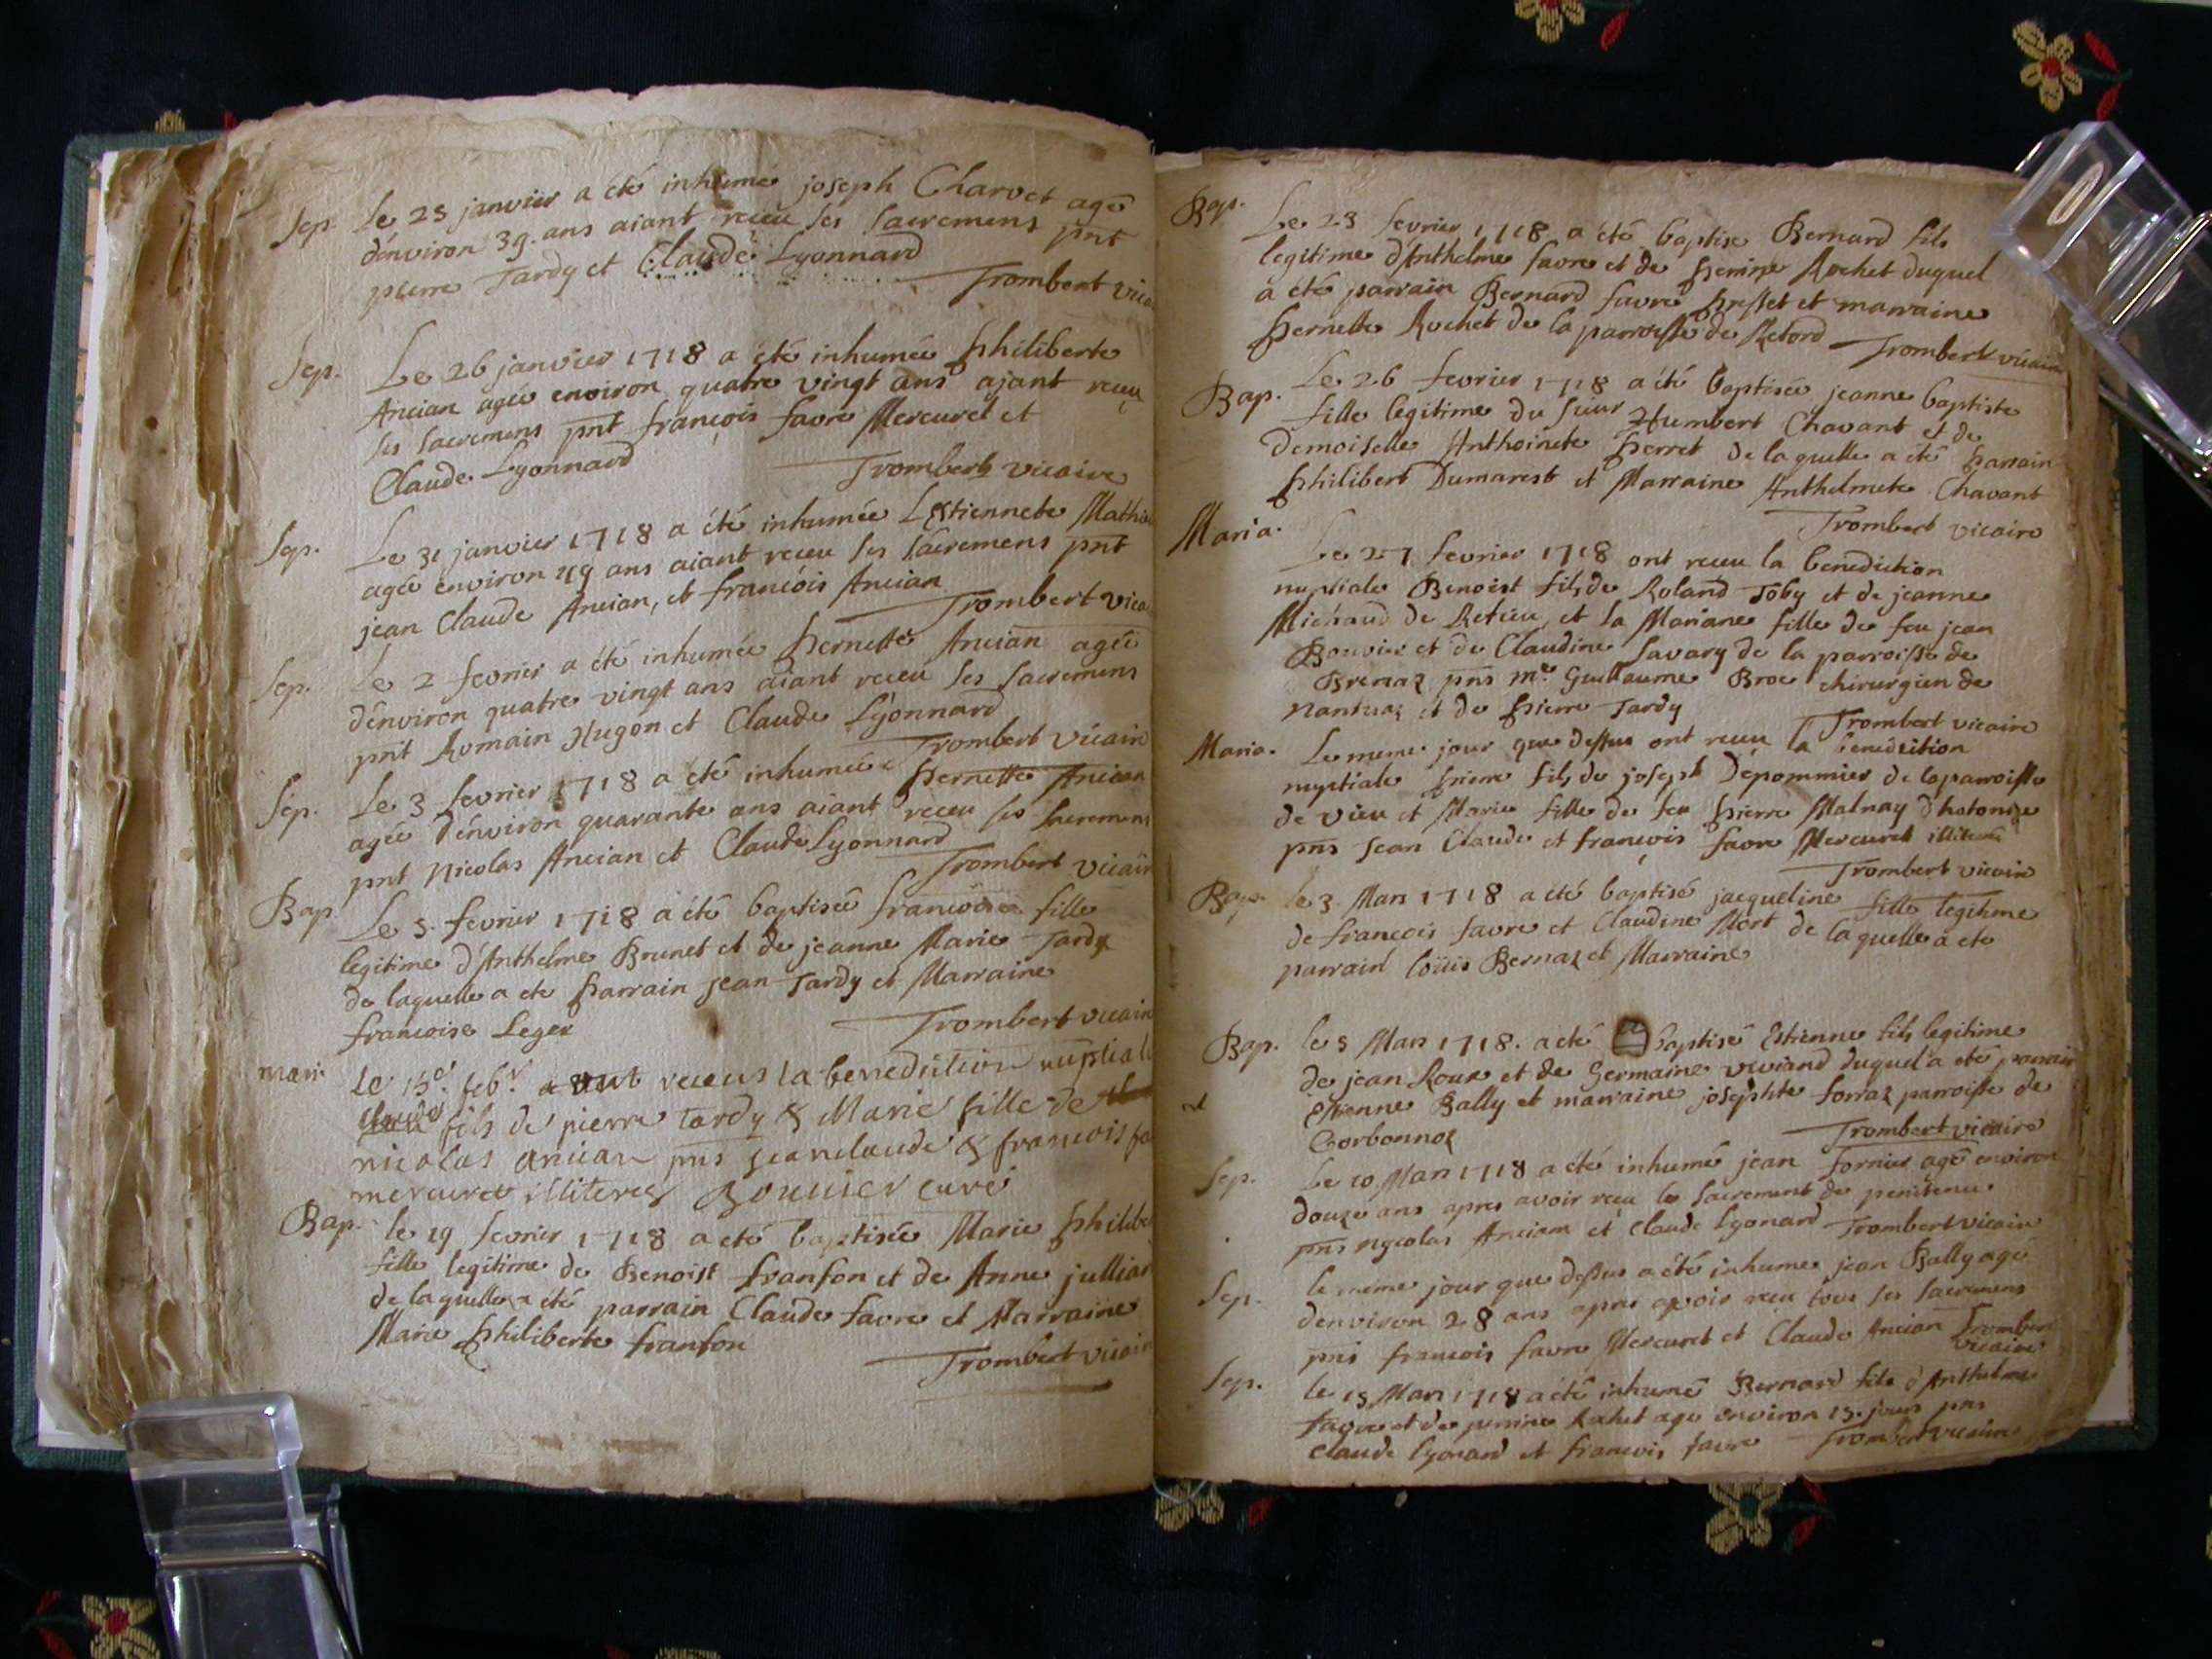 Sep. Le 25 janvier a été inhumé joseph Charvet agé
d'environ 39. ans aiant receu ses sacremens pnt
pierre Tardy et Claude Lyonnard
Trombert vica
Sep. Le 26 janvier 1718 a été inhumée philiberte
Ancian agée environ quatre vingt ans ajant receu
ses sacremens pnt françois favre Mercuret et
Claude Lyonnard
Trombert vicaire
Sep. Le 31 janvier 1718 a été inhumée Estiennete Mathi
agée environ 49 ans aiant receu ses sacremens pnt
jean Claude Ancian, et françois Ancian
Trombert vica
Sep. Le 2 fevrier a été inhumée pernette Ancian agée
d'environ quatre vingt ans aiant receu ses sacremens
pnt Romain Hugon et Claude Lyonnard
Trombert vicair
Sep. Le 3 fevrier 1718 a été inhumée pernette Ancian
agée d'environ quarante ans aiant receu ses sacremens
pnt Nicolas Ancian et Claude Lyonnard
Trombert vicair
Bap. Le 5. fevrier 1718 a été baptisée françoise fille
legitime d'Anthelme Brunet et de jeanne Marie Tardy
de laquelle a ete parrain jean Tardy et Marraine
francoise Leger
Trombert vicair
mari. Le 15e. feb.r ont receus la benediction nuptiale
fils de pierre tardy & Marie fille de
nicolas ancian pns jeanclaude & francois fa
mercuret illiteres Bouuier curé
Bap. le 19 fevrier 1718 a eté baptisée Marie philibe
fille legitime de Benoist franfon et de Anne jullia
de laquelle a été parrain Claude favre et Marraine
Marie philiberte franfon
Trombert vicair
Bap. Le 23 fevrier 1718 a été baptise Bernard fils
legitime d'Anthelme favre et de Rochet duquel
a été parrain Bernard favre et marraine
pernette Rochet de la parroisse de Retord
Trombert vicair
Bap. Le 26 fevrier 1718 a été baptisée jeanne baptiste
fille legitime du sieur Humbert Chavant et de
Demoiselle Anthoinete perret de laquelle a été parrain
philibert Dumarest et Marraine Anthelmete Chavant
Trombert vicaire
Maria. Le 27 fevrier 1718 ont receu la benediction
nuptiale Benoist fils de Roland Toby et de jeanne
Michaud de et la Mariane fille de feu jean
Bouvier et de Claudine Savary de la parroisse de
Brenaz pns me. Guillaume Broc chirurgien de
Nantuaz et de pierre Tardy
Trombert vicaire
Maria. Le meme jour que dessus ont receu la benediction
nuptiale pierre fils de joseph Dépommier de la parroisse
de vieu et Marie fille de feu pierre Malnay
pns Jean Claude et françois favre Mercuret
Trombert vicair
Bap. le 3. Mars 1718 a eté baptisé jacqueline fille legitime
de francois favre et Claudine Mort de laquelle a ete
parrain loüis Bernaz et Marraine
Bap. le 5 Mars 1718. a eté baptisé Estienne fils legitime
de jean Roux et de Germaine viviand duquel a eté parrain
Estienne Bally et marraine josephte forraz parroisse de
Corbonnoz
Trombert vicaire
Sep. Le 10 Mars 1718 a été inhumé jean fornier agé environ
douze ans apres avoir receu le sacrement de penitence
pns nycolas Anciam et Claude Lyonard Trombert vicair
Sep. le meme jour que dessus a été inhumé jean Bally agé
d'environ 28 ans apres avoir receu tous ses sacremens
pns francois favre Mercuret et Claude Ancian Trombert
vicaire
Sep. le 15 Mars 1718 a été inhumé Bernard fils d'Anthelme
favre et de Rochet age environ 15. jours pns
Claude Lyonard et francois favre Trombert vicaire